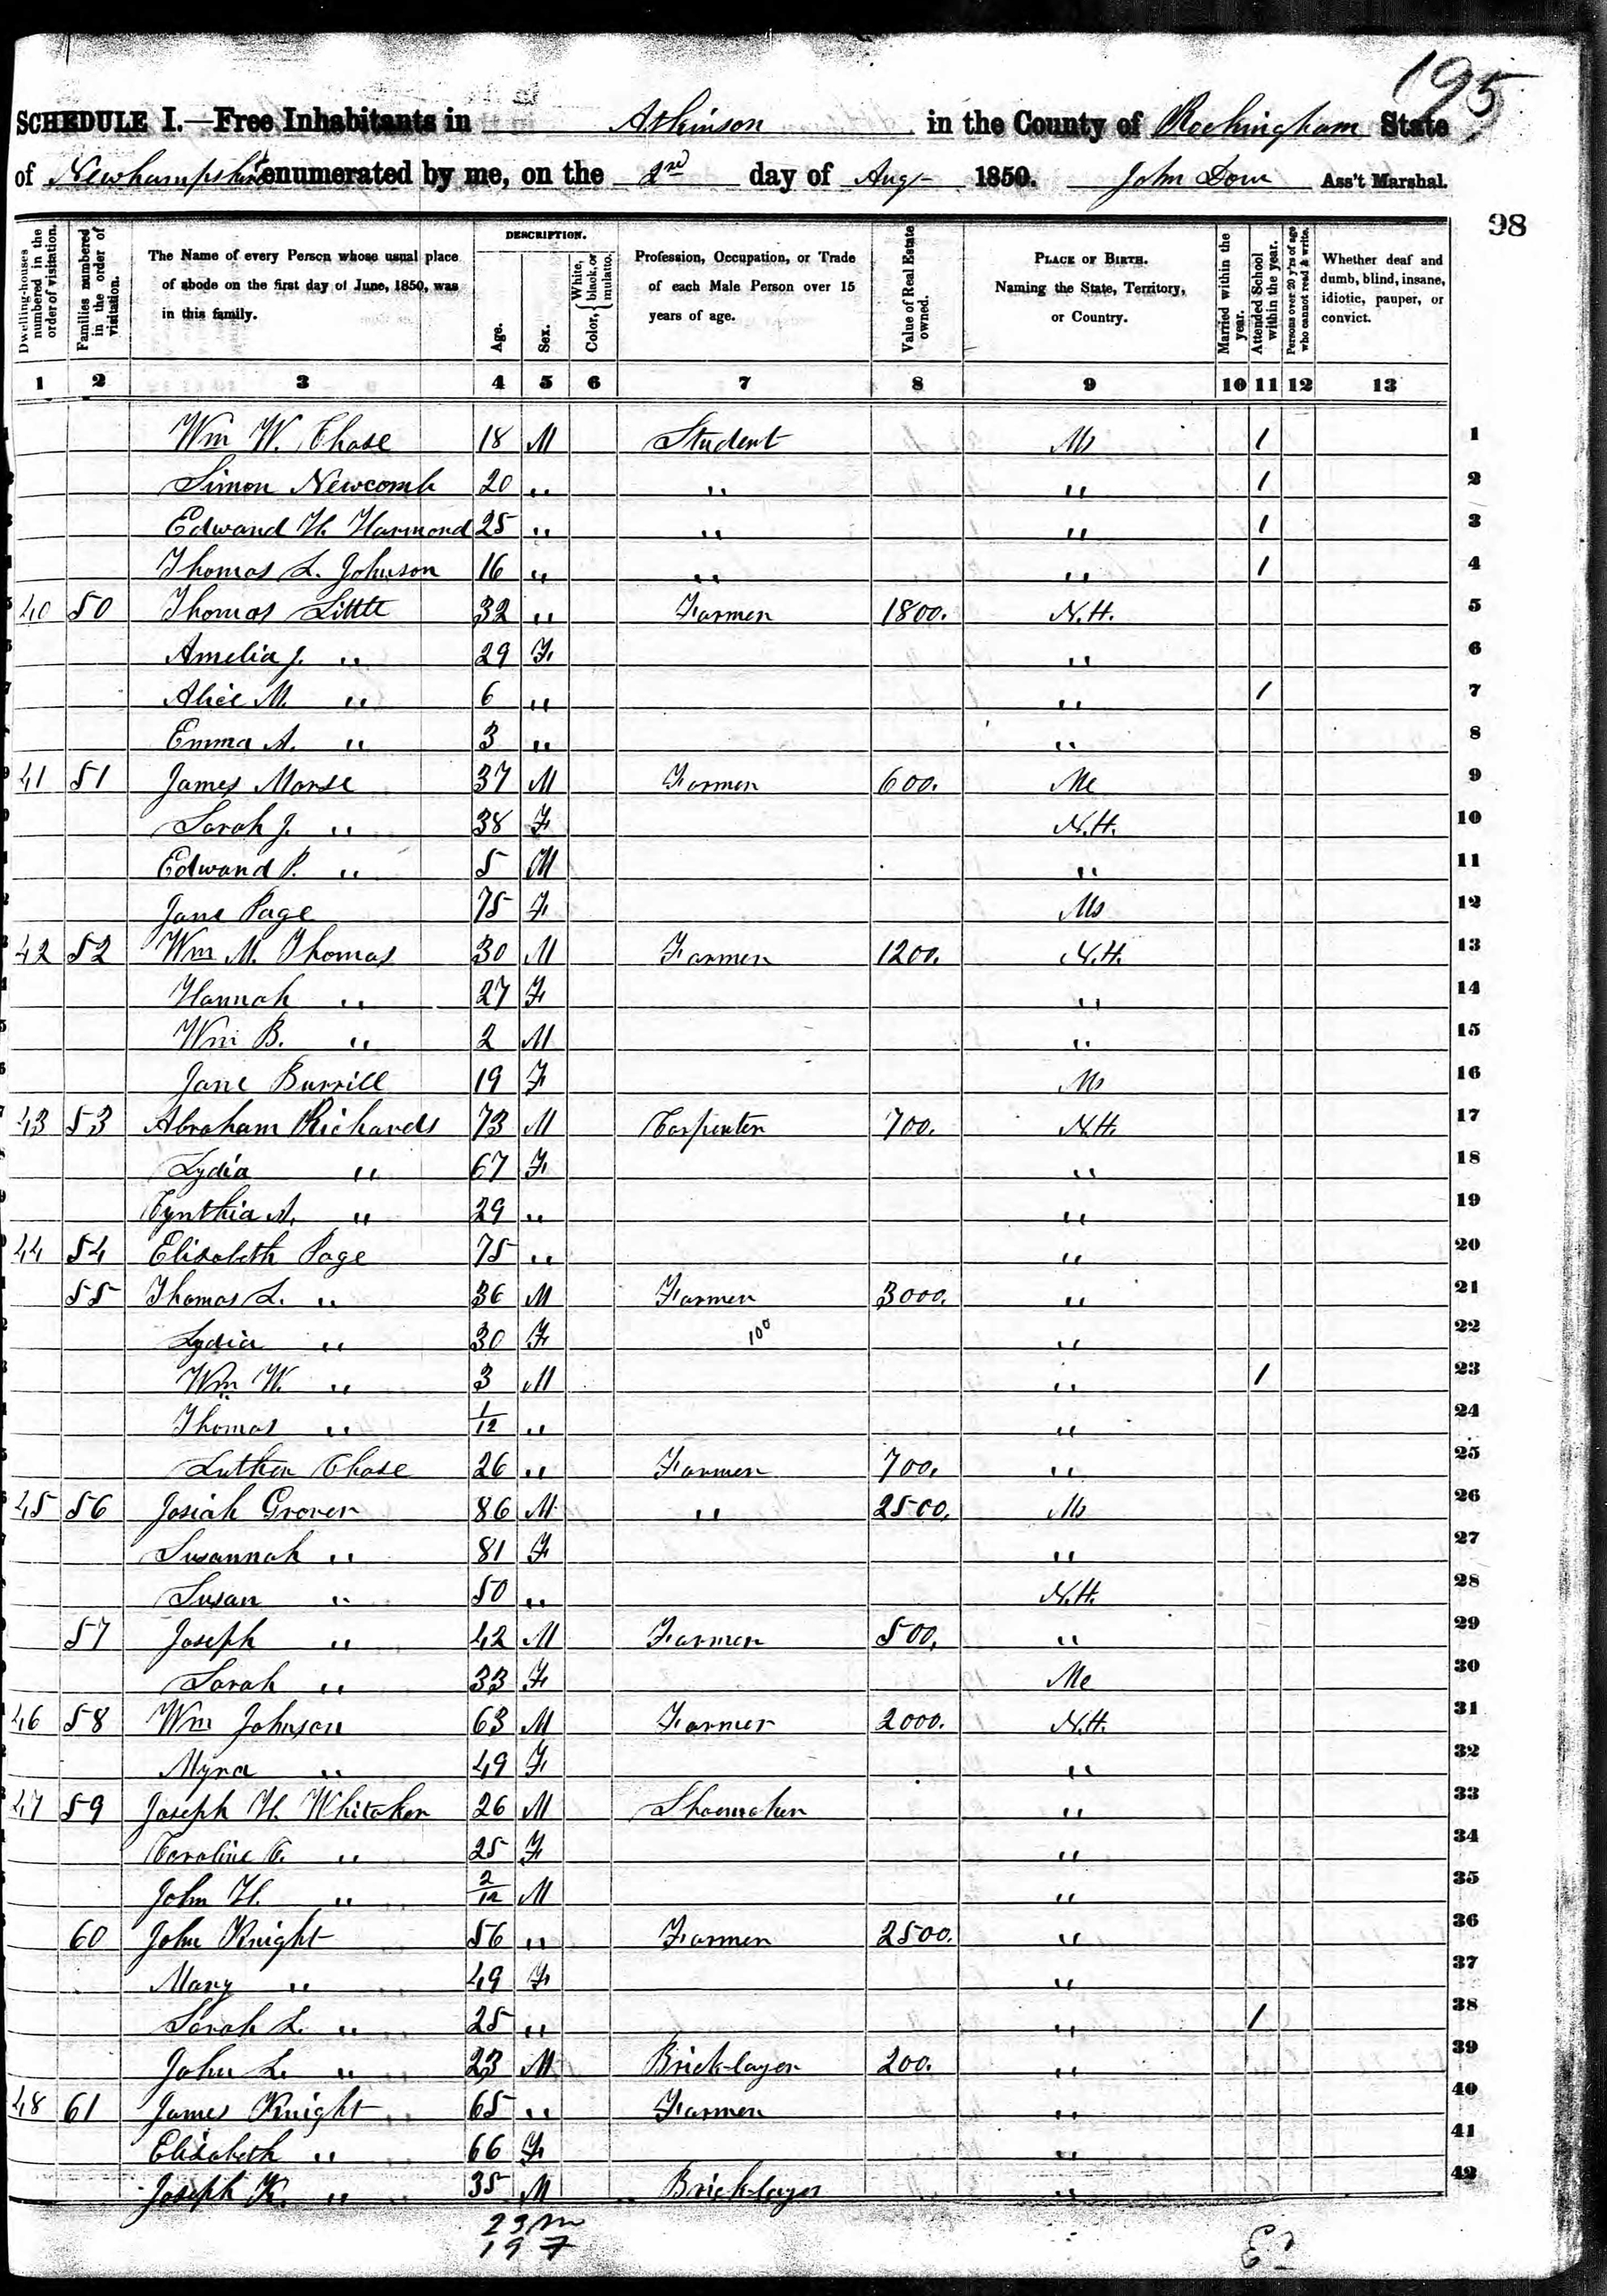 195
SCHEDULE I.—Free Inhabitants in Atkinson in the County of Rockingham State
of Newhampshire enumerated by me, on the 2nd day of Aug 1850. John Dow Ass't Marshal.
98
Dwelling-houses numbered in the order of visitation.
Families numbered in the order of visitation.
The Name of every Person whose usual place of abode on the first day of June, 1850, was in this family.
DESCRIPTION.
Age.
Sex.
Color, { White, black, or mulatto.
Profession, Occupation, or Trade of each Male Person over 15 years of age.
Value of Real Estate owned.
PLACE OF BIRTH. Naming the State, Territory, or Country.
Married within the year.
Attended School within the year.
Persons over 20 y'rs of age who cannot read & write.
Whether deaf and dumb, blind, insane, idiotic, pauper, or convict.
1 2 3 4 5 6 7 8 9 10 11 12 13
Wm W. Chase 18 M Student Ms 1 1
Simon Newcomb 20 " " " 1 2
Edward H. Harmond 25 " " " 1 3
Thomas L. Johnson 16 " " " 1 4
40 50 Thomas Little 32 " Farmer 1800. N.H. 5
Amelia J. " 29 F " 6
Alice M. " 6 " " 1 7
Emma A. " 3 " " 8
41 51 James Morse 37 M Farmer 600. Me 9
Sarah J. " 38 F N.H. 10
Edward P. " 5 M " 11
Jane Page 75 F Ms 12
42 52 Wm M. Thomas 30 M Farmer 1200. N.H. 13
Hannah " 27 F " 14
Wm B. " 2 M " 15
Jane Burrill 19 F Ms 16
43 53 Abraham Richards 73 M Carpenter 700. N.H. 17
Lydia " 67 F " 18
Cynthia A. " 29 " " 19
44 54 Elisabeth Page 75 " " 20
55 Thomas L. " 36 M Farmer 3000. " 21
Lydia " 30 F 100 " 22
Wm W. " 3 M " 1 23
Thomas " 1/12 " " 24
Luther Chase 26 " Farmer 700. " 25
45 56 Josiah Grover 86 M " 2500. Ms 26
Susannah " 81 F " 27
Susan " 50 " N.H. 28
57 Joseph " 42 M Farmer 500. " 29
Sarah " 33 F Me 30
46 58 Wm Johnson 63 M Farmer 2000. N.H. 31
Myra " 49 F " 32
47 59 Joseph H. Whitaker 26 M Shoemaker " 33
Caroline C. " 25 F " 34
John H. " 2/12 M " 35
60 John Knight 56 " Farmer 2500. " 36
Mary " 49 F " 37
Sarah L. " 25 " " 1 38
John L. " 23 M Bricklayer 200. " 39
48 61 James Knight 65 " Farmer " 40
Elisabeth " 66 F " 41
Joseph K. " 35 M Bricklayer " 42
23 m
19 F